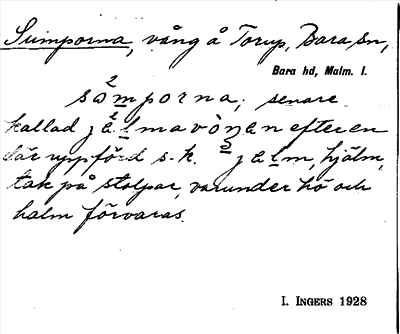 Sumporna, vång å Torup, Bara sn,
Bara hd, Malm. l.
sȯmporna; senare
kallad jälmavòŋan efter en
där uppförd s.k. jälm, hjälm,
tak på stolpar, varunder hö och
halm förvaras.
I. INGERS 1928